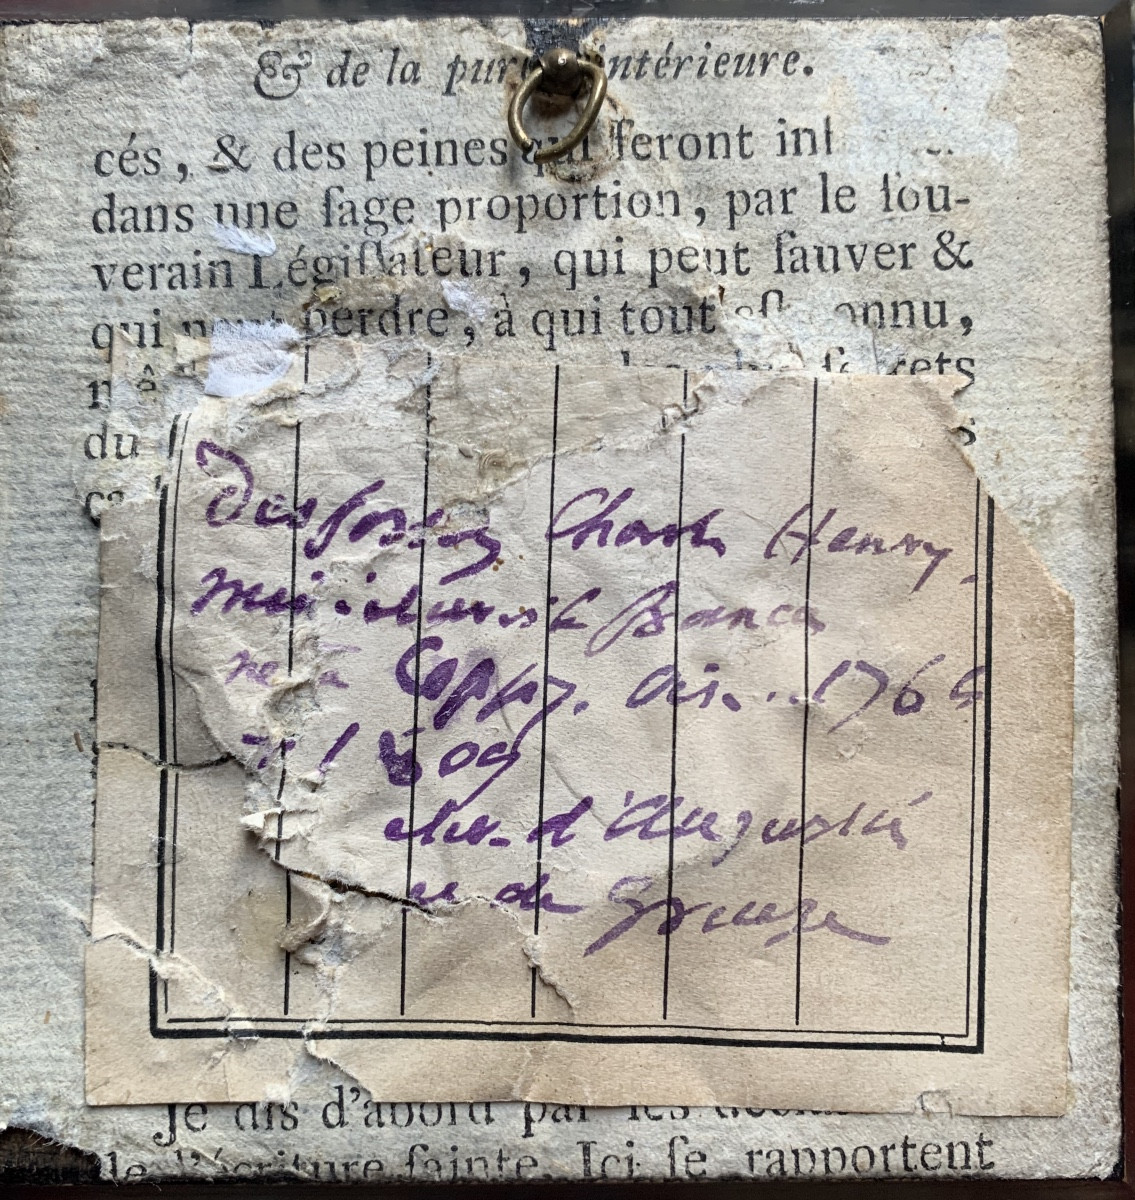 & de la pure intérieure.
cés, & des peines qui ſeront
dans une ſage proportion, par le ſou-
verain Légiſlateur, qui peut ſauver &
qui peut perdre, à qui tout eſt connu,
du
Desfossez Charles Henry
Miniaturiste France
né à Cappy. Ois... 1764
1809
élev. d'Augustin
de Greuze
Je dis d'abord par les
de l'écriture ſainte. Ici ſe rapportent